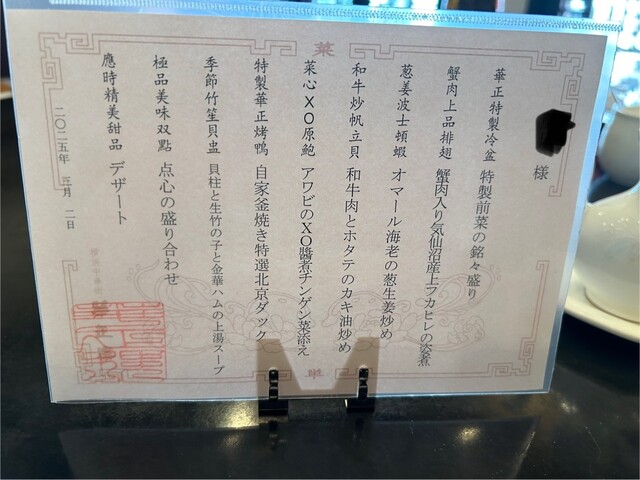 菜
様
華正特製冷盆 特製前菜の銘々盛り
蟹肉上品排翅 蟹肉入り気仙沼産上フカヒレの姿煮
葱姜波士頓蝦 オマール海老の葱生姜炒め
和牛炒帆立貝 和牛肉とホタテのカキ油炒め
菜心XO原鮑 アワビのXO醬煮チンゲン菜添え
特製華正烤鴨 自家釜焼き特選北京ダック
季節竹笙貝盅 貝柱と生竹の子と金華ハムの上湯スープ
極品美味双點 点心の盛り合わせ
應時精美甜品 デザート
二〇二五年 三月 二日
単